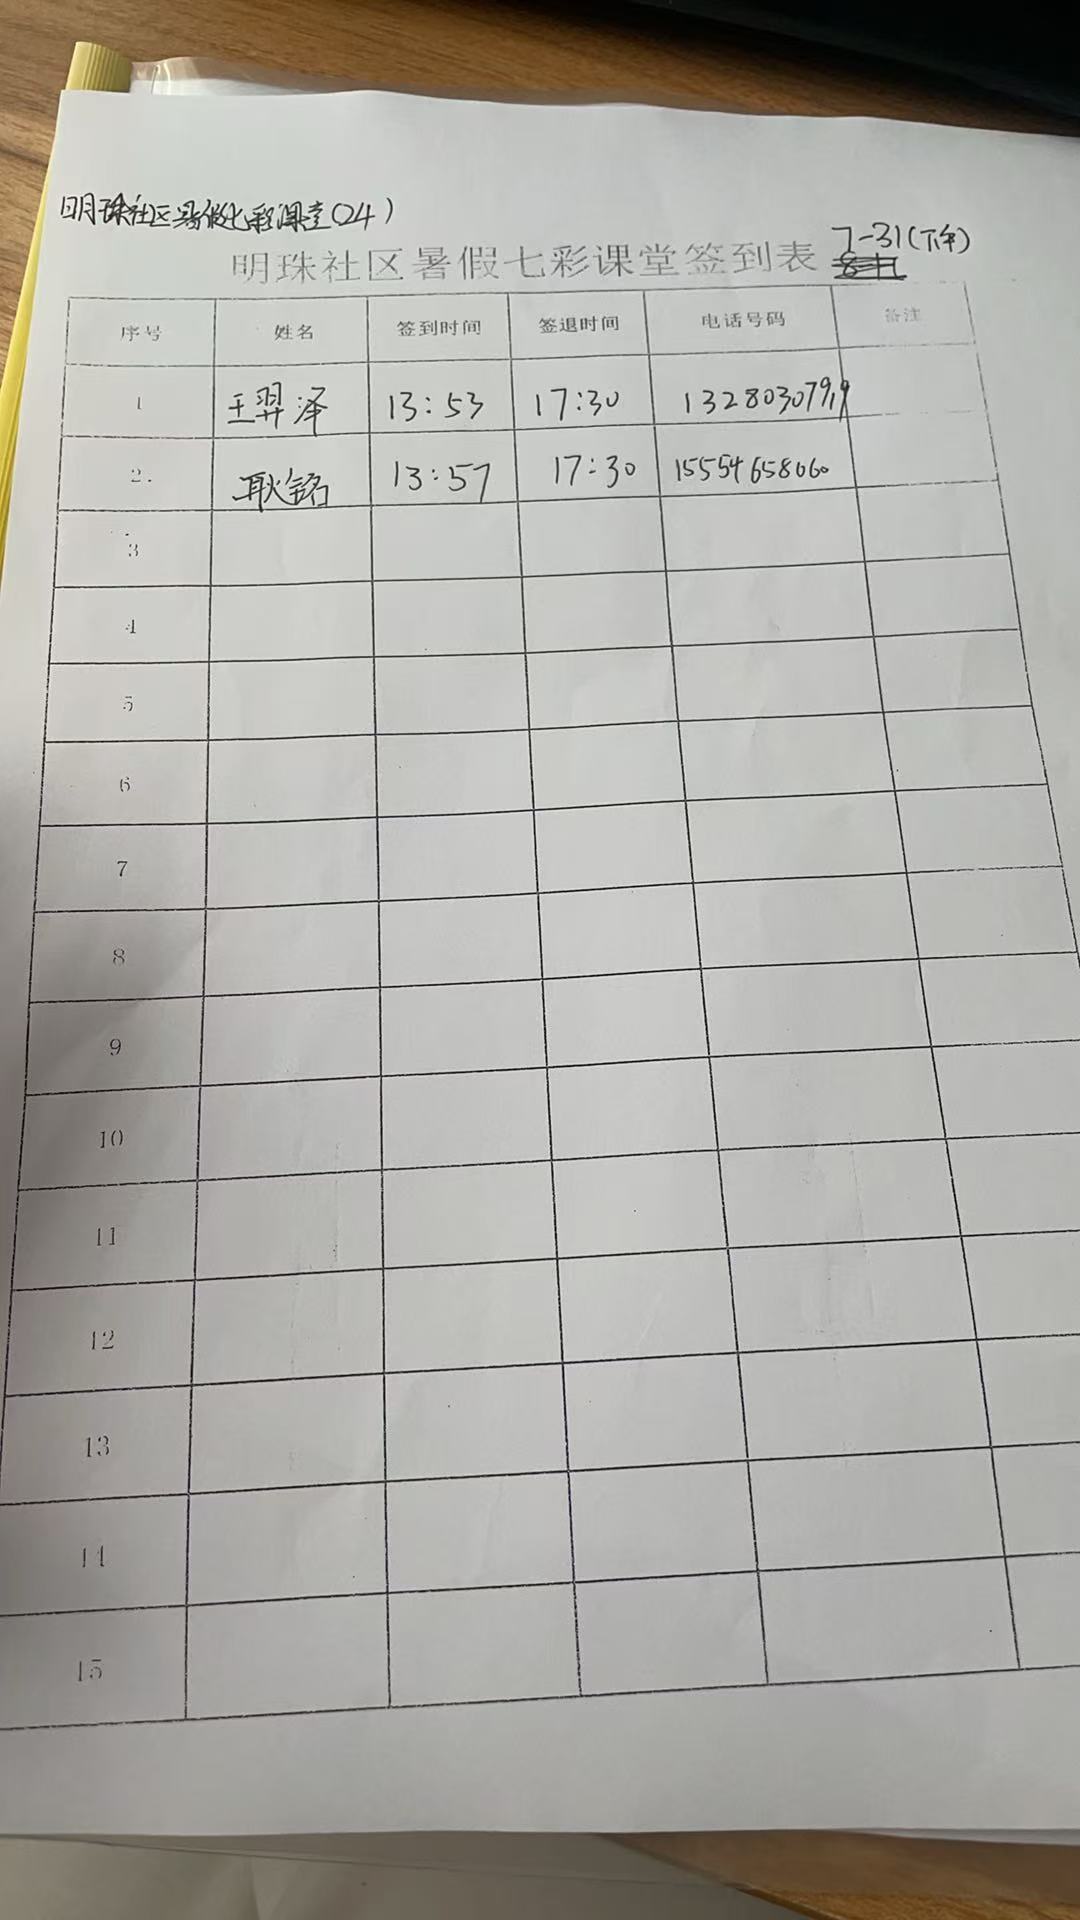 明珠社区暑假七彩课堂(24)
明珠社区暑假七彩课堂签到表 7-31(下午)
序号 姓名 签到时间 签退时间 电话号码 备注
1 王羿泽 13:53 17:30 13280307919
2. 耿铭 13:57 17:30 15554658060
3
4
5
6
7
8
9
10
11
12
13
14
15